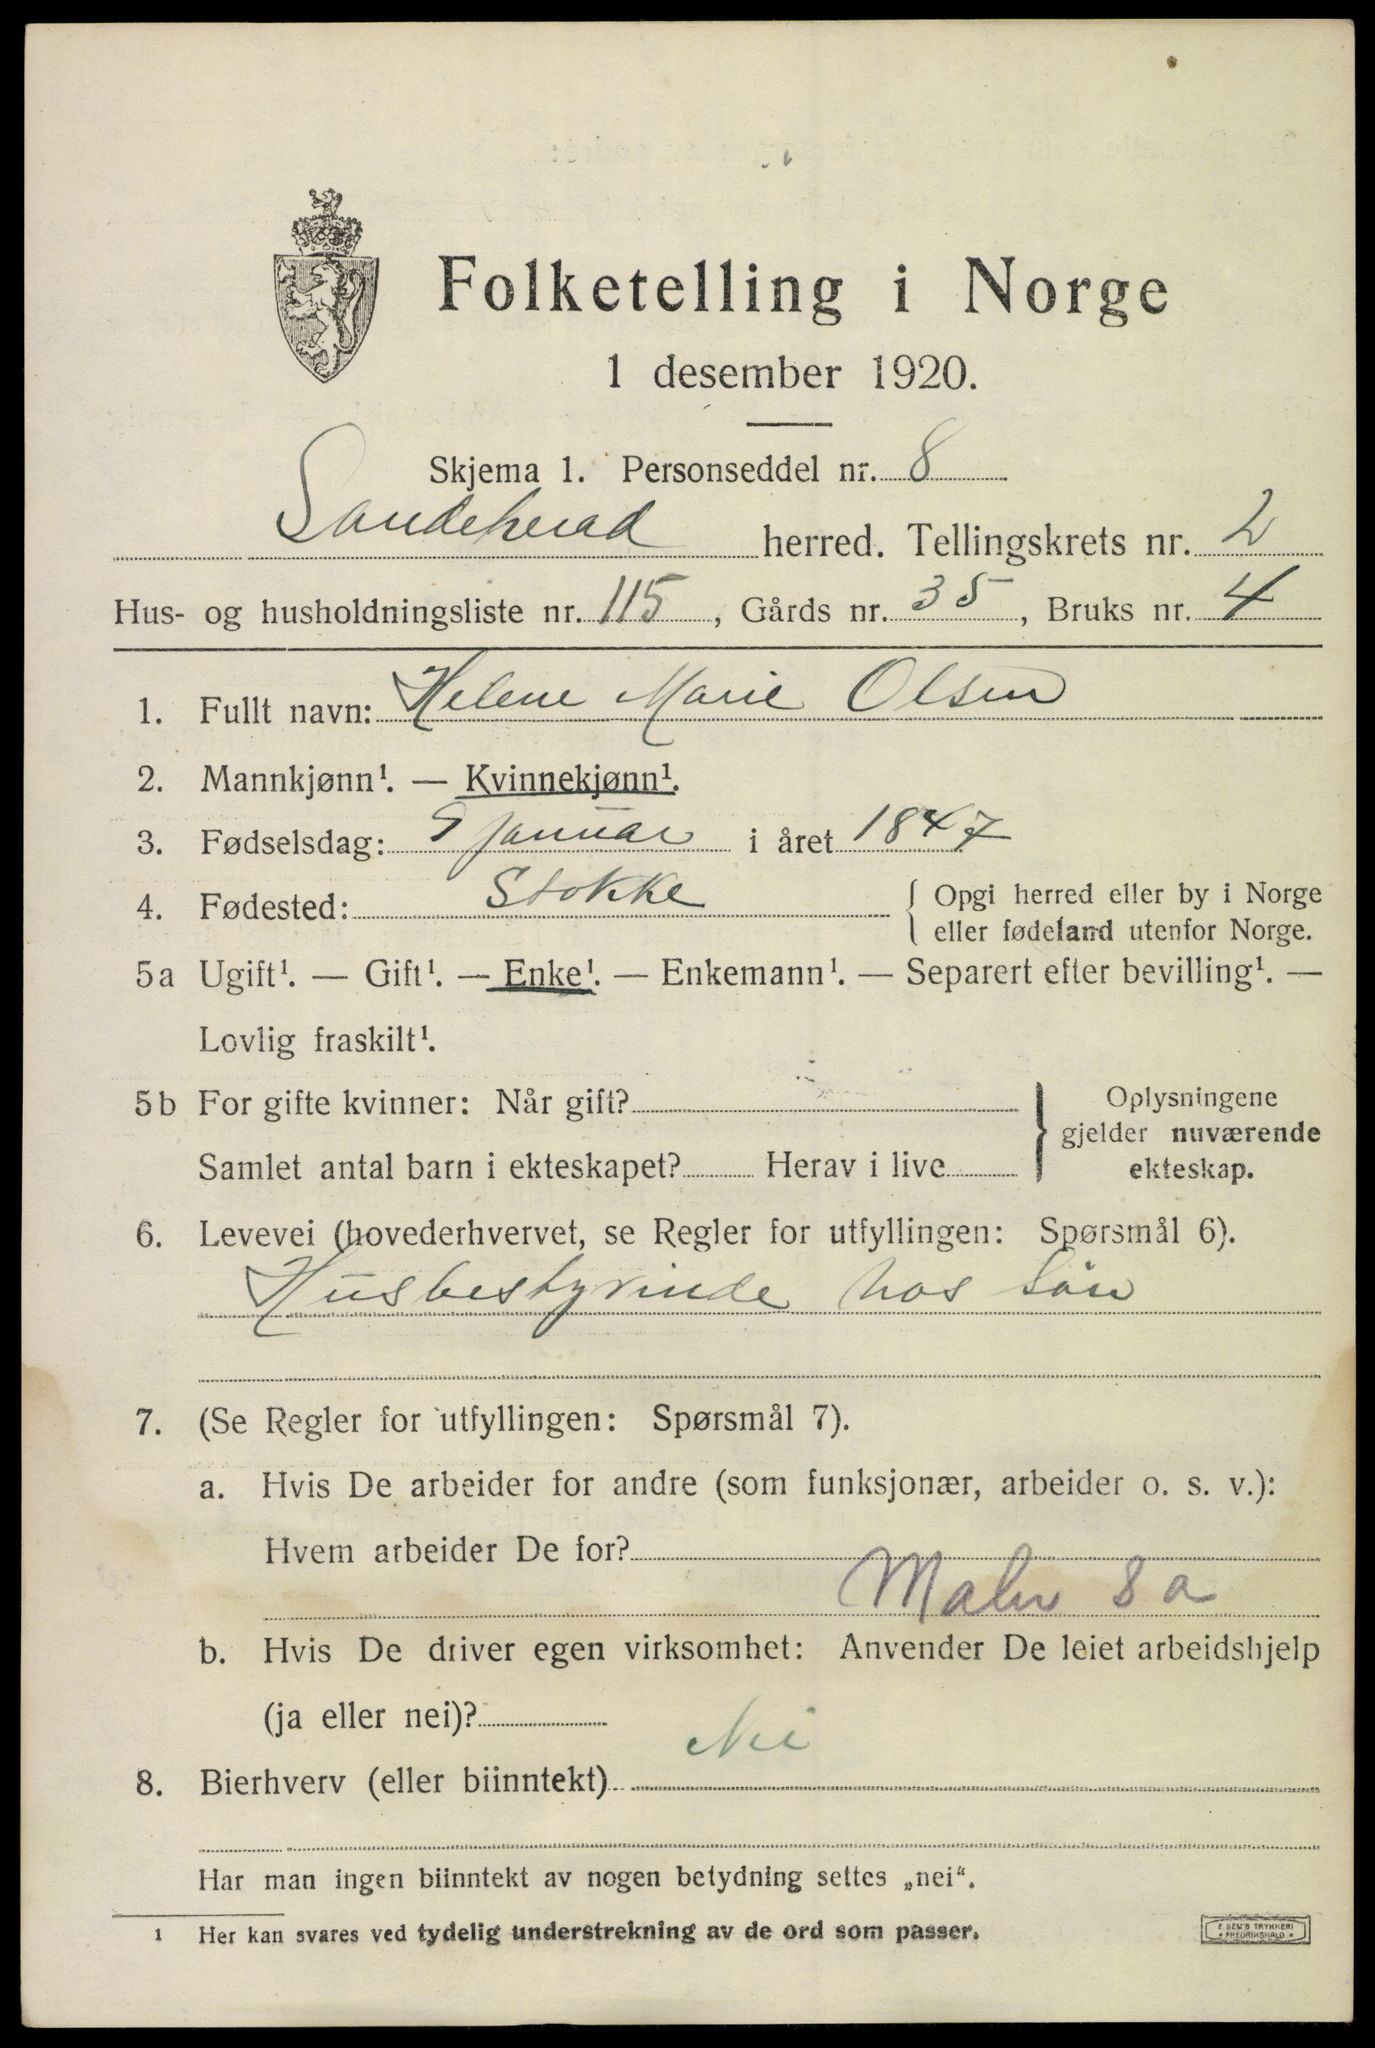 Folketelling i Norge
1 desember 1920.
Skjema 1. Personseddel nr. 8
Sandeherad herred. Tellingskrets nr. 2
Hus- og husholdningsliste nr. 115, Gårds nr. 35, Bruks nr. 4
1. Fullt navn: Helene Marie Olsen
2. Mannkjønn¹. — Kvinnekjønn¹.
3. Fødselsdag: 9 januar i året 1847
4. Fødested: Stokke { Opgi herred eller by i Norge
eller fødeland utenfor Norge.
5a Ugift¹. — Gift¹. — Enke¹. — Enkemann¹. — Separert efter bevilling¹. —
Lovlig fraskilt¹.
5b For gifte kvinner: Når gift? } Oplysningene
gjelder nuværende
Samlet antal barn i ekteskapet? Herav i live ekteskap.
6. Levevei (hovederhvervet, se Regler for utfyllingen: Spørsmål 6).
Husbestyrinde hos søn
7. (Se Regler for utfyllingen: Spørsmål 7).
a. Hvis De arbeider for andre (som funksjonær, arbeider o. s. v.):
Hvem arbeider De for?
Maler 8 a
b. Hvis De driver egen virksomhet: Anvender De leiet arbeidshjelp
(ja eller nei)?
Nei
8. Bierhverv (eller biinntekt)
Har man ingen biinntekt av nogen betydning settes „nei“.
¹ Her kan svares ved tydelig understrekning av de ord som passer.
E. SEM'S TRYKKERI
• FREDRIKSHALD •